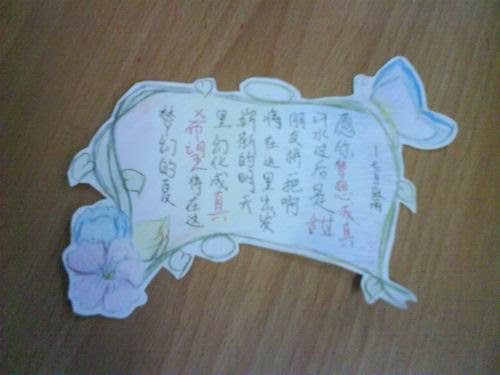 梦幻的夏
希望将在这
里幻化成真
崭新的明天
将在这里出发
朋友拼一把啊
汗水过后是甜
愿你梦想成真